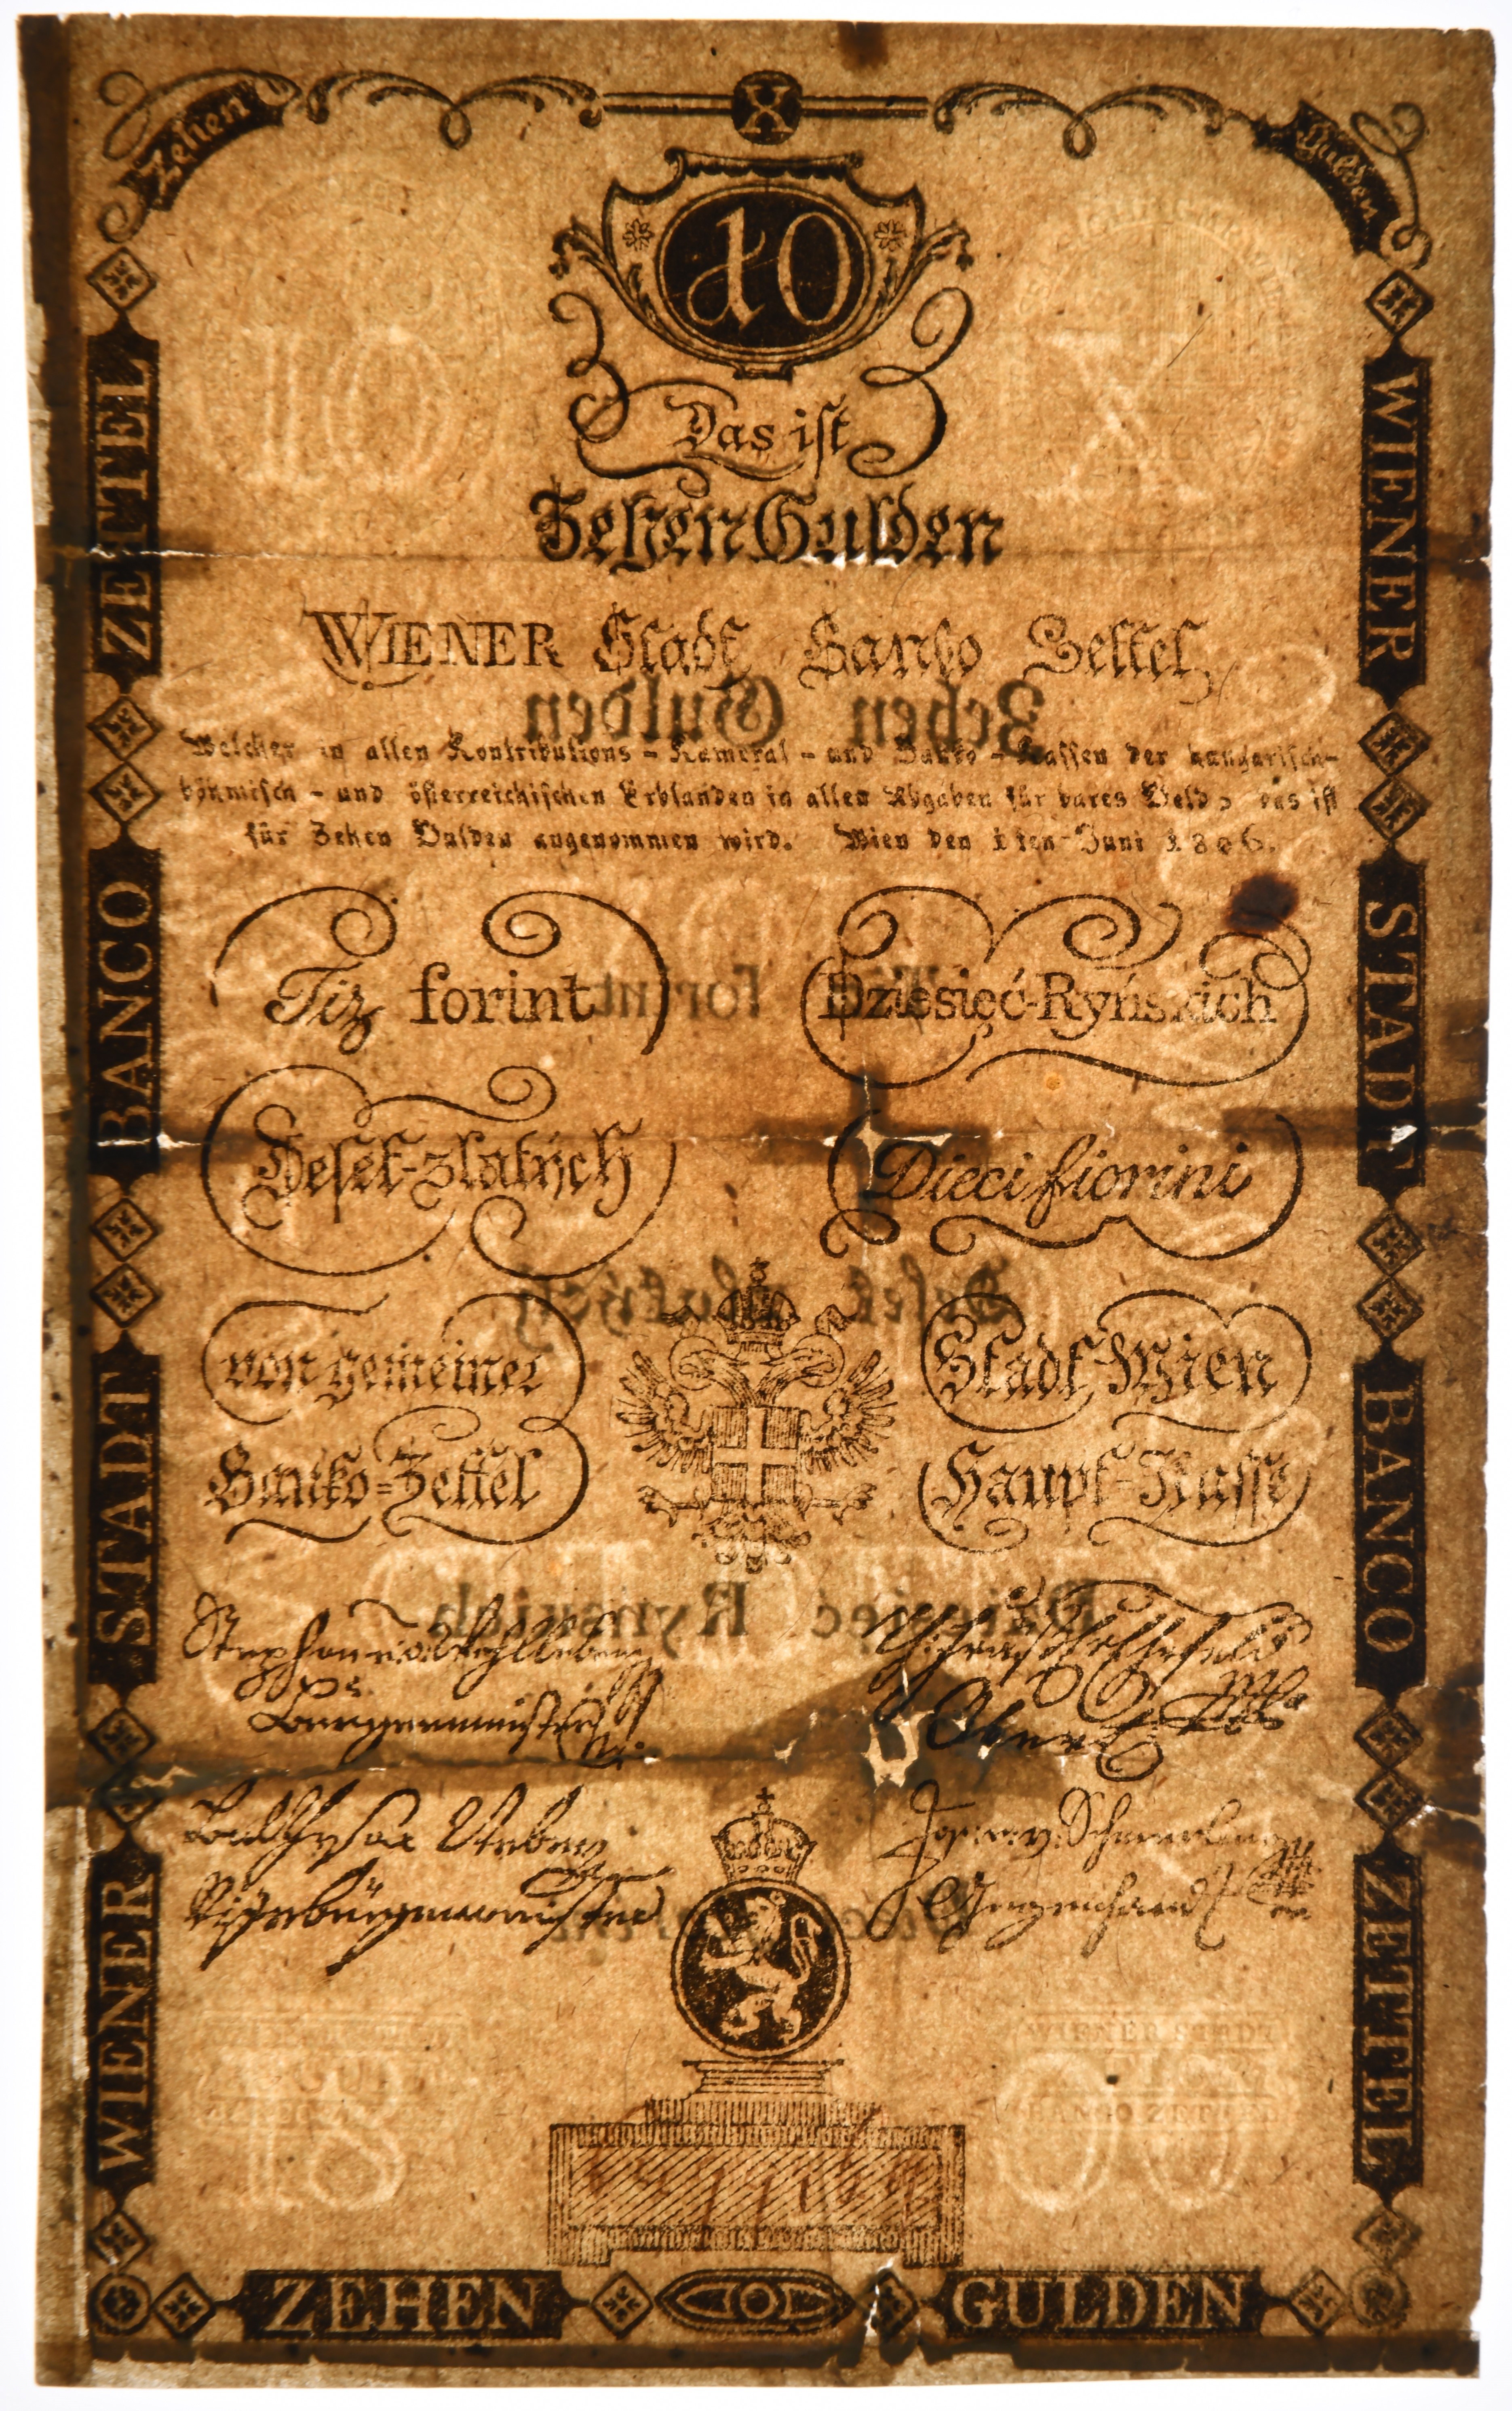 Zehen
X
Gulden
10
10
X
Das iſt
Zehen Gulden
WIENER Stadt Banko Zettel
Zehen Gulden
Welcher in allen Kontributions - Kameral - und Banko - Kaſſen der hungariſch-
böhmiſch - und öſterreichiſchen Erblanden in allen Abgaben für bares Geld, das iſt
für Zehen Gulden angenommen wird. Wien den 1ten Juni 1806.
Tiz forint
Dziesięć-Ryńskich
forint
Deſet-zlatých
Dieci fiorini
Deſet zlatých
von gemeiner
Stadt-Wien
Banko=Zettel
Haupt-Kaſſe
Dziesięć Rynskich
Stephan
Burgermeister
Vizebürgermeister
18
WIENER STADT
BANCO ZETTEL
06
WIENER STADT BANCO ZETTEL
WIENER STADT BANCO ZETTEL
ZEHEN GULDEN